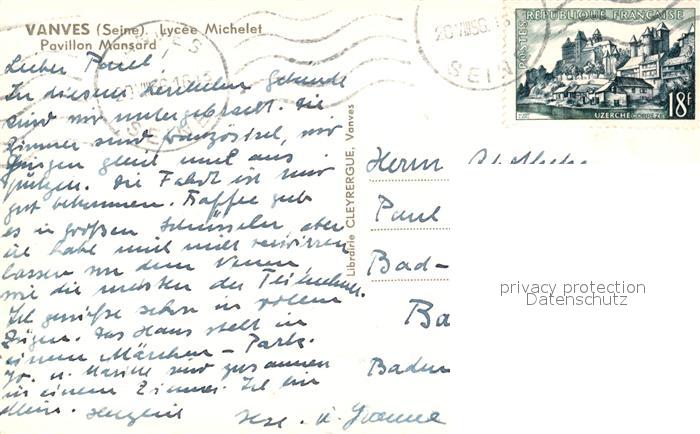 VANVES (Seine). Lycée Michelet
Pavillon Mansard
Lieber Paul
In diesem herrlichen Gebäude
sind wir untergebracht. Die
Zimmer sind französisch, wir
fingen gleich mal aus
putzen. Die Fahrt ist mir
gut bekommen. Kaffee gab
es in großen Schüsseln, aber
ich habe mich nicht verwirren
lassen von dem
wie die meisten der Teilnehmer.
Ich genieße schon in vollen
Zügen. Das Haus steht in
einem Märchen-Park.
u. sind zusammen
in einem Zimmer. Ich bin
allein. Herzlich
u. Yvonne
Librairie CLEYRERGUE, Vanves
Herrn
Paul
Bad-
Ba
Baden
privacy protection
Datenschutz
POSTES RÉPUBLIQUE FRANÇAISE
18F
UZERCHE
SEINE